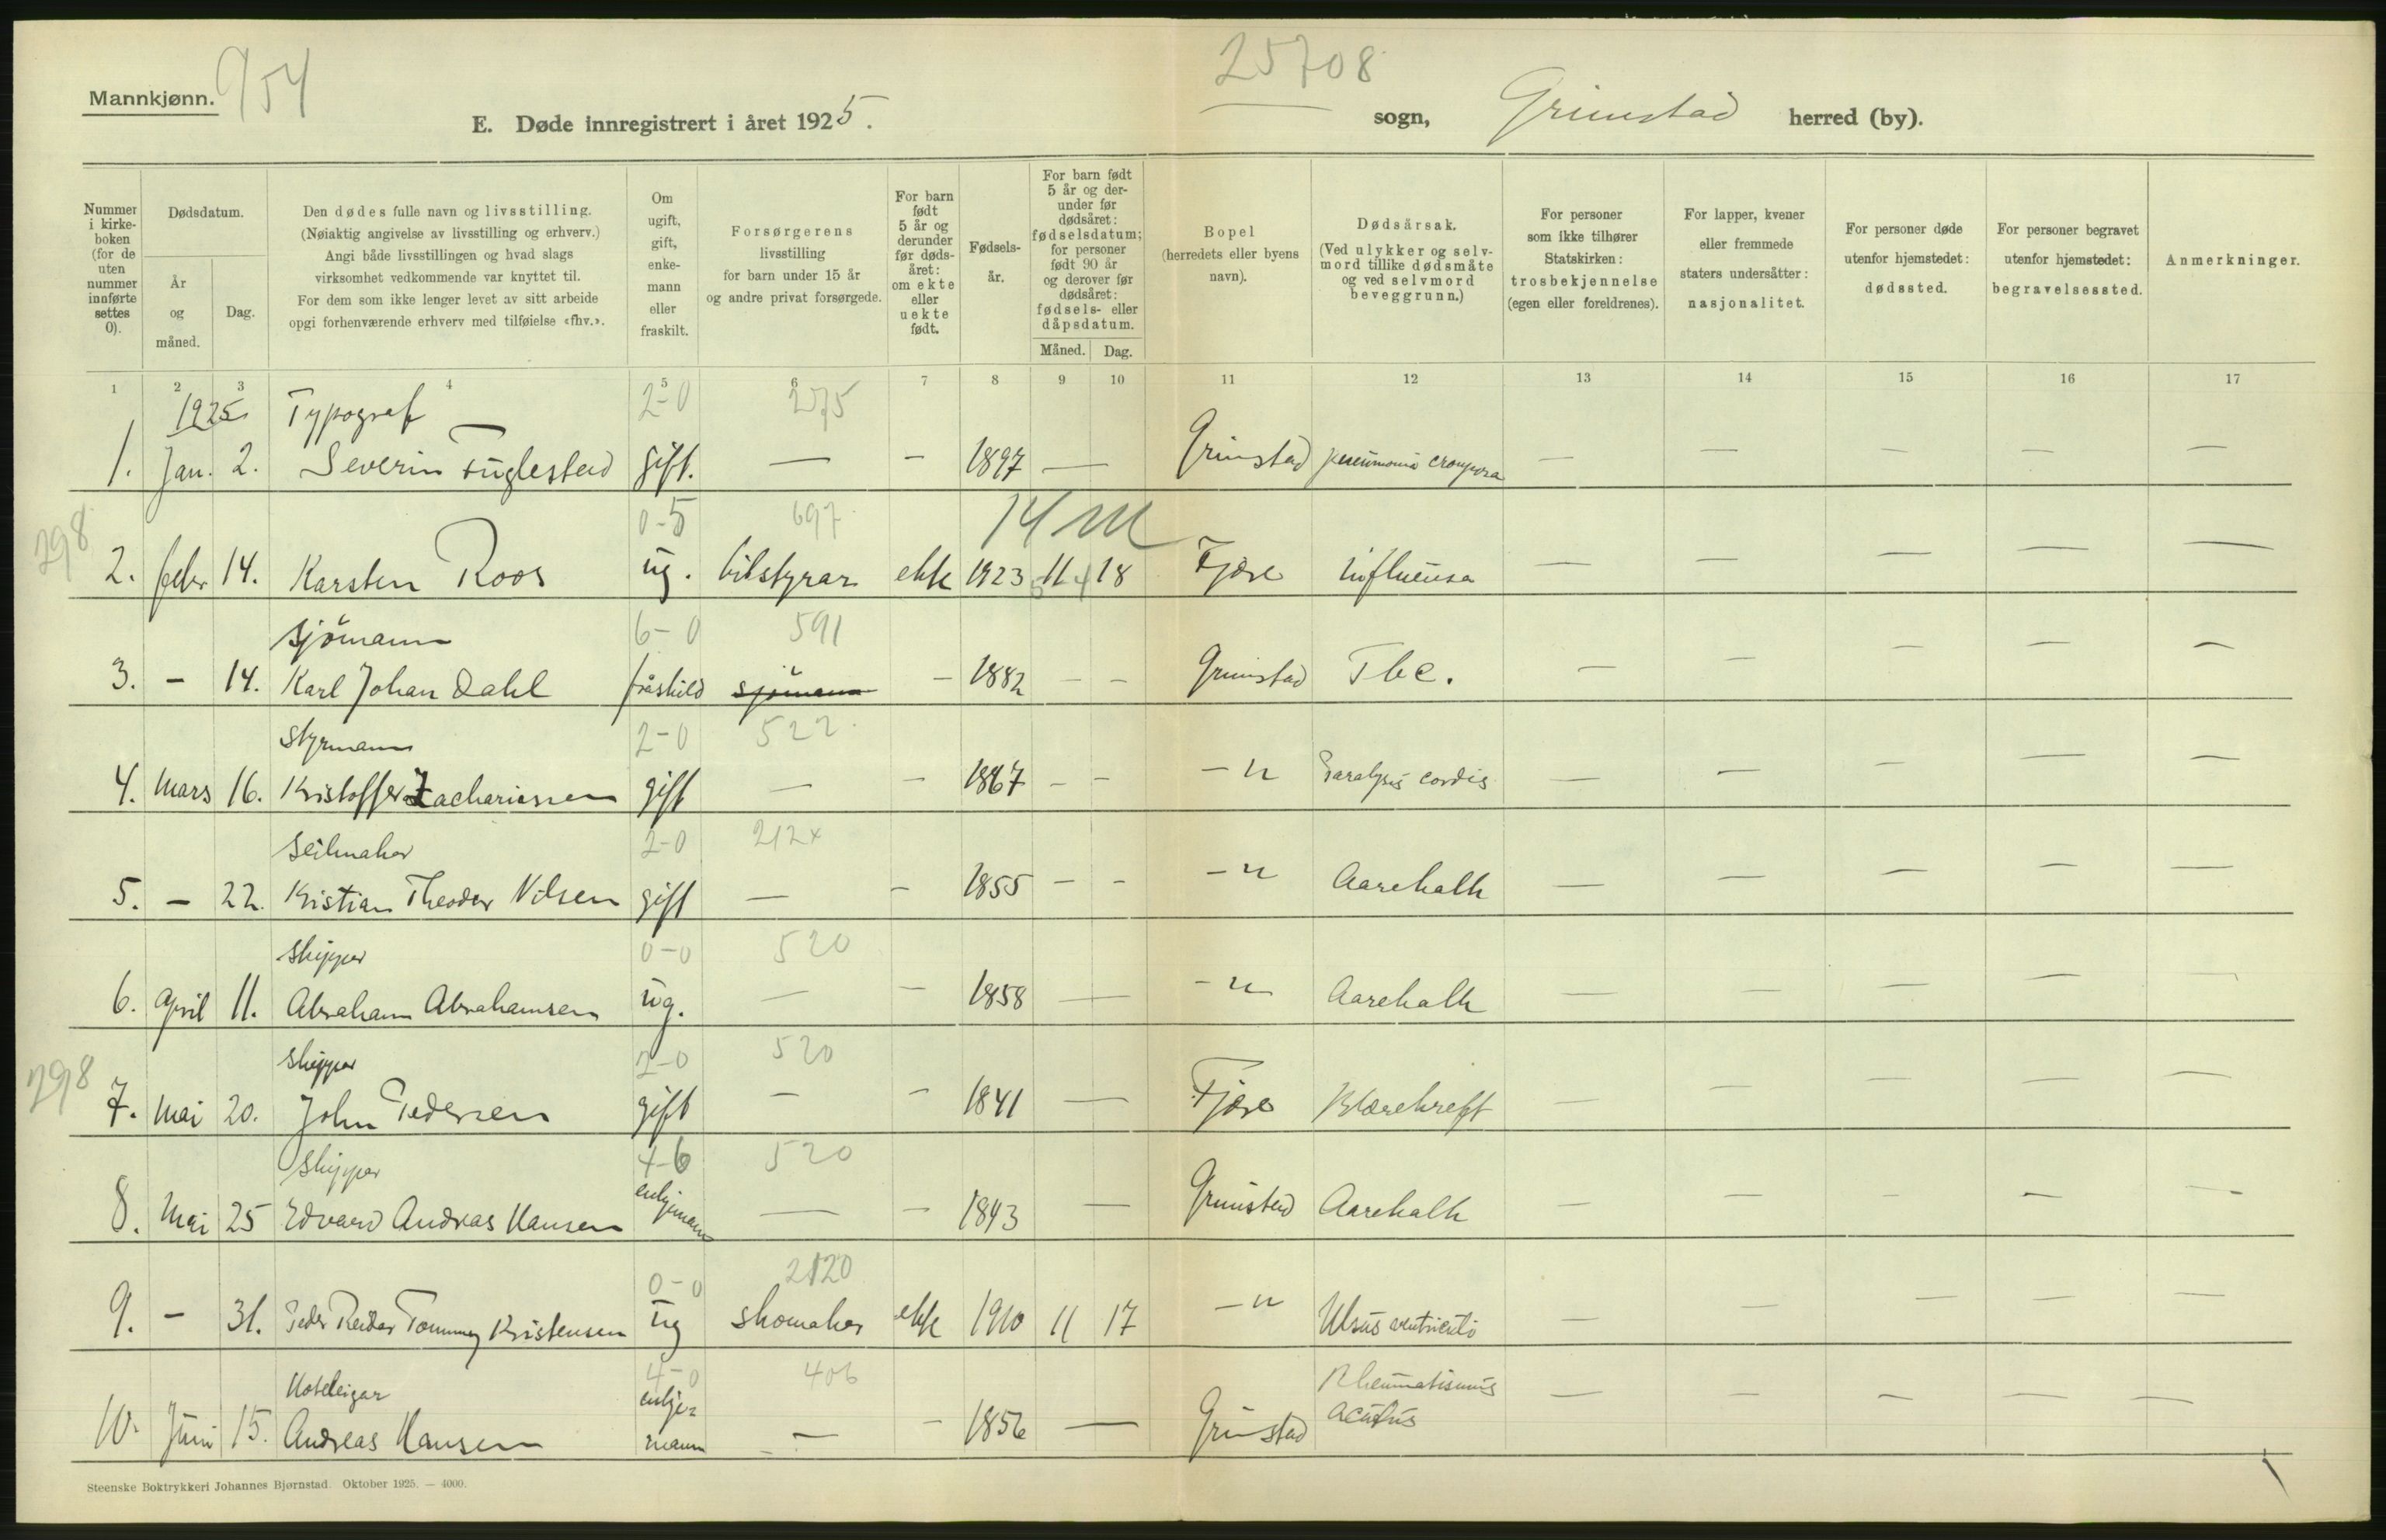 Mannkjønn.
954
25708
E. Døde innregistrert i året 1925.
sogn, Grimstad herred (by).
Nummer i kirke-boken (for de uten nummer innførte settes 0).
Dødsdatum.
År og måned.
Dag.
Den dødes fulle navn og livsstilling.
(Nøiaktig angivelse av livsstilling og erhverv.)
Angi både livsstillingen og hvad slags
virksomhet vedkommende var knyttet til.
For dem som ikke lenger levet av sitt arbeide
opgi forhenværende erhverv med tilføielse «fhv.».
Om ugift, gift, enke-mann eller fraskilt.
Forsørgerens
livsstilling
for barn under 15 år
og andre privat forsørgede.
For barn født 5 år og derunder før døds-året: om ekte eller uekte født.
Fødsels-år.
For barn født 5 år og der-under før dødsåret: fødselsdatum; for personer født 90 år og derover før dødsåret: fødsels- eller dåpsdatum.
Måned. Dag.
Bopel
(herredets eller byens
navn).
Dødsårsak.
(Ved ulykker og selv-
mord tillike dødsmåte
og ved selvmord
beveggrunn.)
For personer
som ikke tilhører
Statskirken:
trosbekjennelse
(egen eller foreldrenes).
For lapper, kvener
eller fremmede
staters undersåtter:
nasjonalitet.
For personer døde
utenfor hjemstedet:
dødssted.
For personer begravet
utenfor hjemstedet:
begravelsessted.
Anmerkninger.
1 2 3 4 5 6 7 8 9 10 11 12 13 14 15 16 17
1925 Typograf 2-0 275
1. Jan. 2. Severin Fuglestad gift. — – 1897 — Grimstad pneumonia crouposa — — — — —
298 0-5 697 14 M
2. febr 14. Karsten Roos ug. bilstyrar ekte 1923 11 18 Fjære influensa — — — — —
sjömann 6-0 591
3. – 14. Karl Johan Dahl fråskild sjömann – 1882 – – Grimstad Tbc. — — — — —
styrmann 2-0 522
4. Mars 16. Kristoffer Zachariassen gift — – 1867 – – –"– Paralysis cordis — — — — —
Seilmaker 2-0 212x
5. – 22. Kristian Theodor Nilsen gift — – 1855 – – –"– Aarekalk — — — — —
skipper 0-0 520
6. April 11. Abraham Abrahamsen ug. — – 1858 — –"– Aarekalk — — — — —
298 skipper 2-0 520
7. Mai 20. John Pedersen gift – – 1841 — Fjære Blærekreft — — — — —
skipper 4-6 520
8. Mai 25 Edvard Andreas Hansen enkjemann — – 1843 — Grimstad Aarekalk — — — — —
0-0 2120
9. – 31. Peder Reidar Tommy Kristensen ug skomaker ekte 1910 11 17 –"– Ulcus ventriculi — — — — —
Hoteleigar 4-0 406
10. Juni 15. Andreas Hansen enkje-mann — – 1856 — Grimstad Rheumatismus acutus — — — — —
Steenske Boktrykkeri Johannes Bjørnstad. Oktober 1925. — 4000.